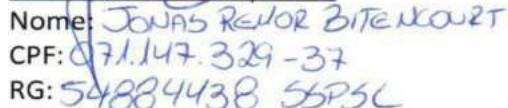 Nome: JONAS RENOR BITENCOURT
CPF: 071.147.329-37
RG: 54884438 SSPSC